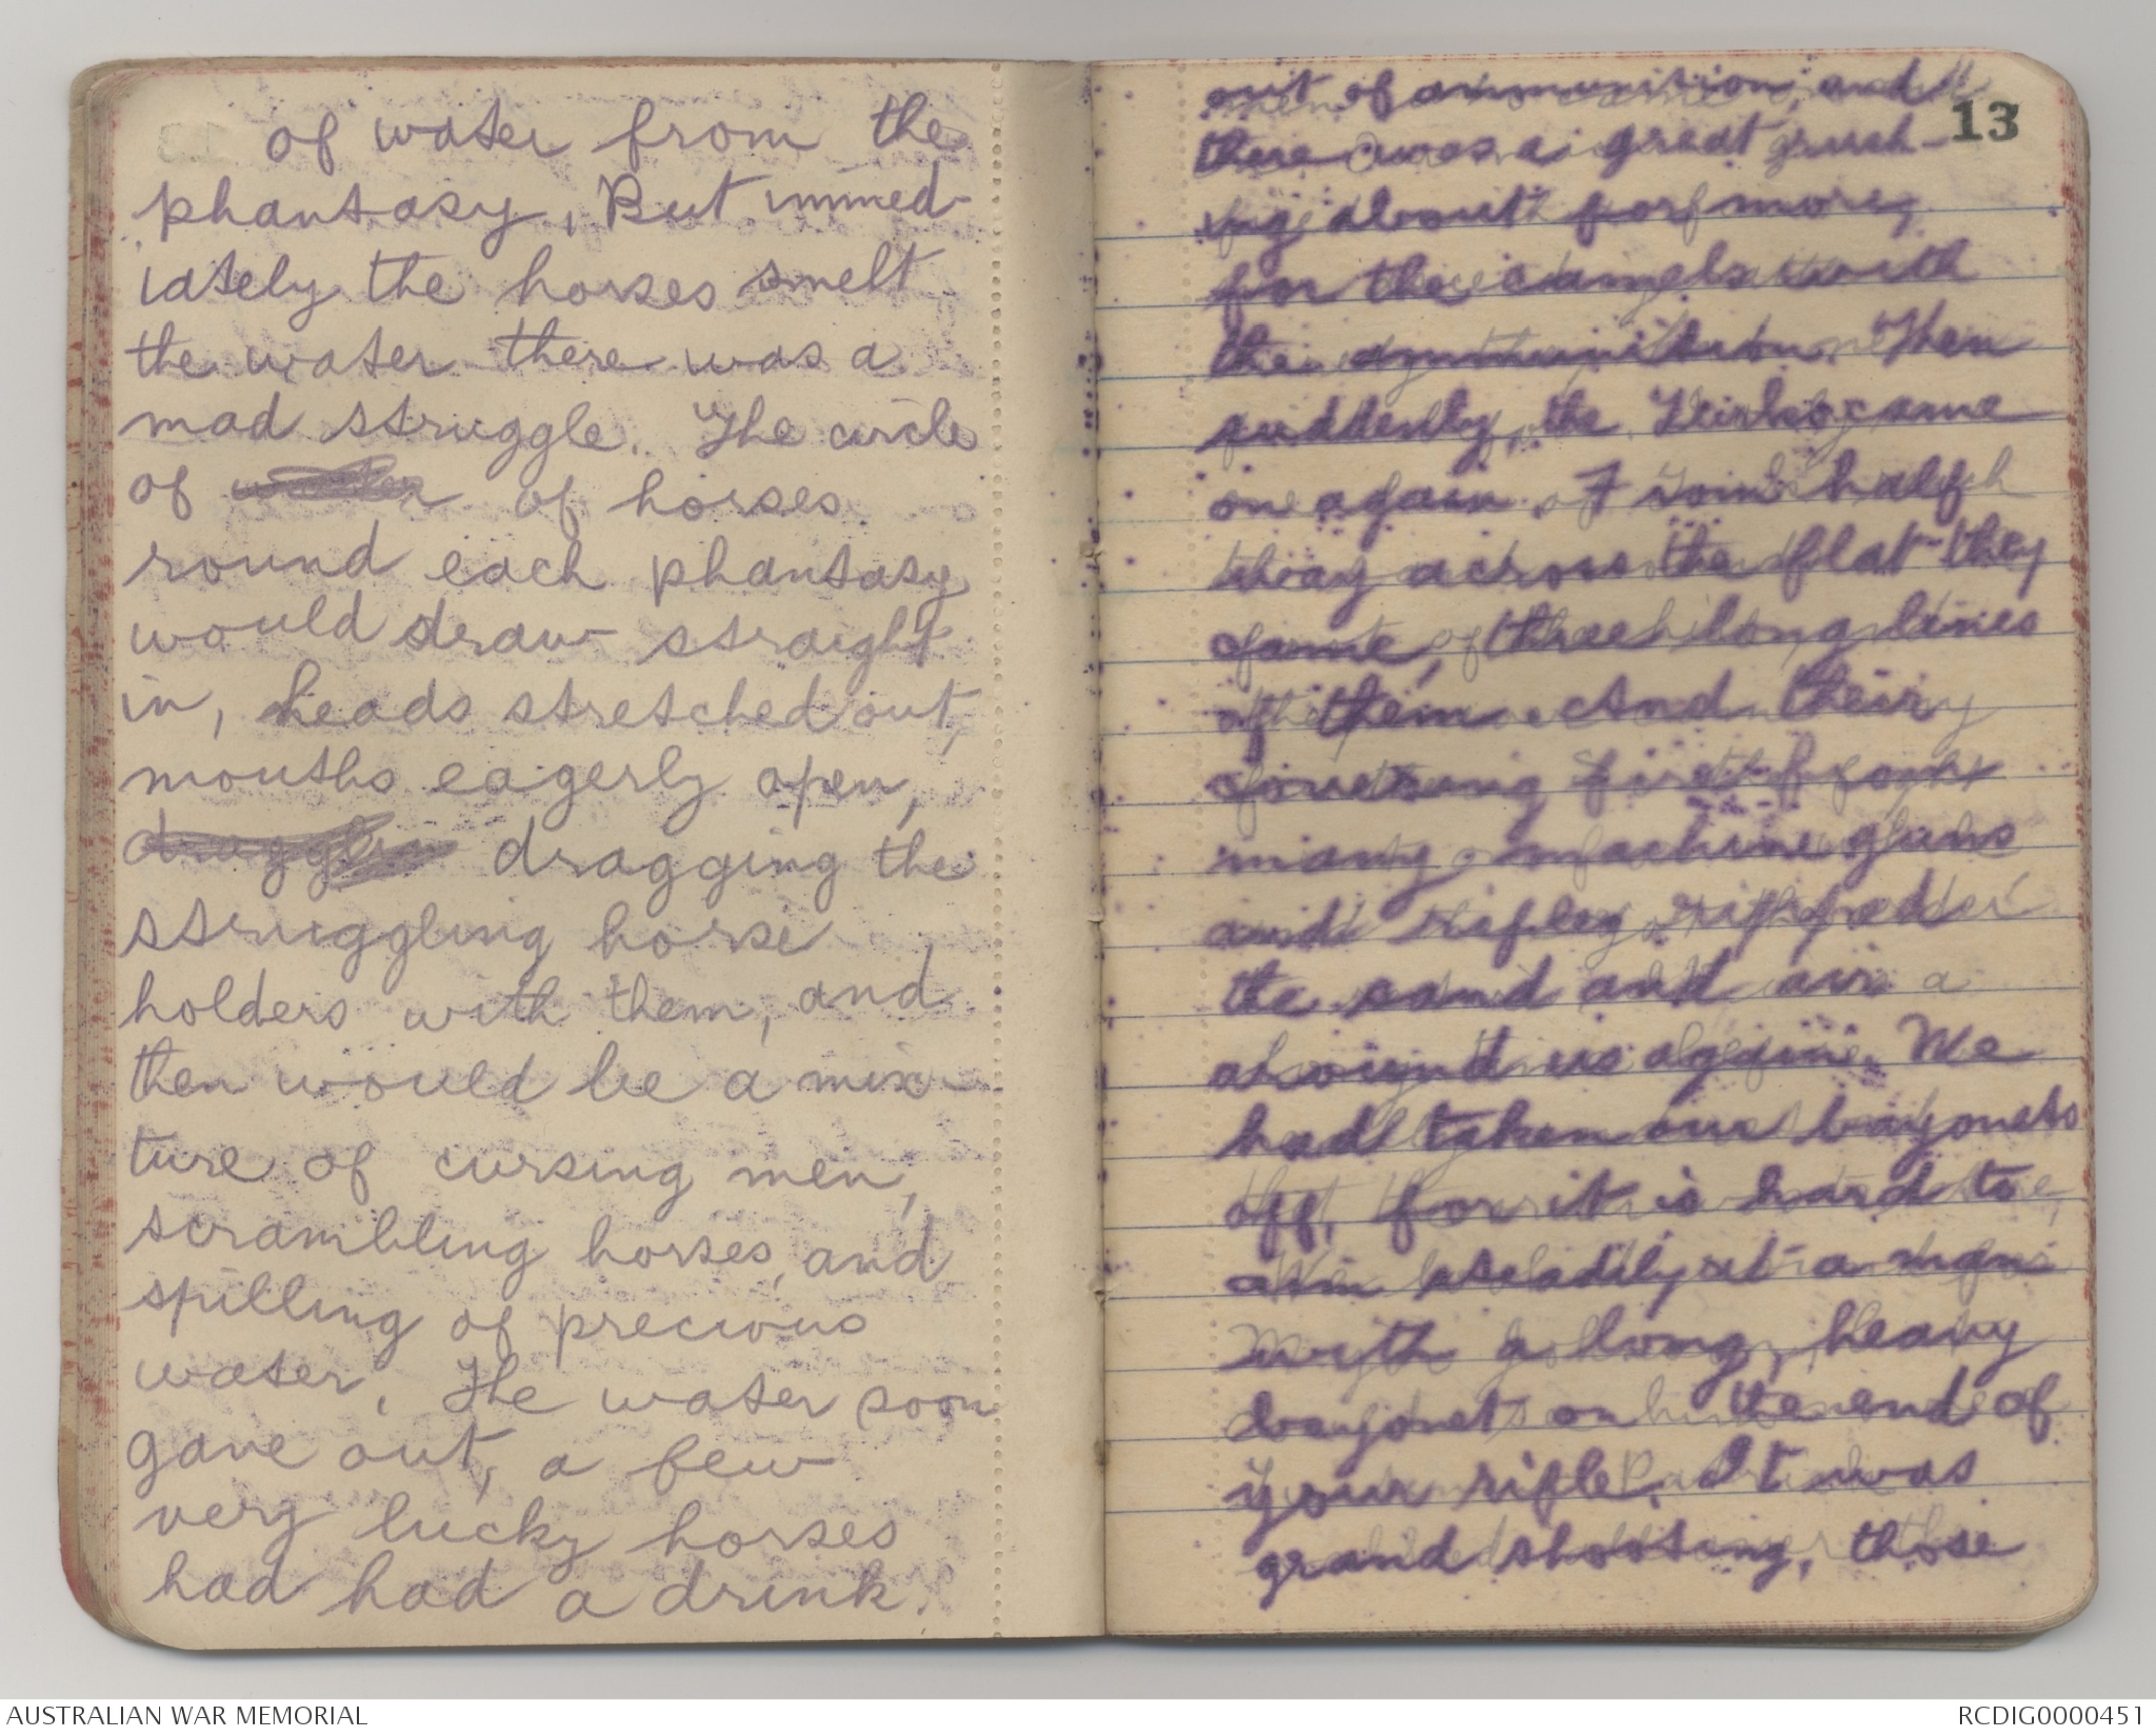 of water from the
phantasy, But immed-
iately the horses smelt
the water there was a
mad struggle. The circle
of water of horses
round each phantasy
would draw straight
in, heads stretched out,
mouths eagerly open,
dragging the
struggling horse
holders with them, and
then would be a mix-
ture of cursing men,
scrambling horses, and
spilling of precious
water. The water soon
gave out, a few
very lucky horses
had had a drink.
13
out of ammunition, and
there was a great rush-
ing about for more,
for the camels with
the ammunition. Then
suddenly, the Turks came
on again. half
way across the flat they
came, three long lines
of them. And their
covering fire from
many machine guns
and rifles ripped
the sand and air
around us again. We
had taken our bayonets
off, for it is hard to
aim steadily at a man
with a long, heavy
bayonet on the end of
your rifle. It was
grand shooting, those
AUSTRALIAN WAR MEMORIAL
RCDIG0000451